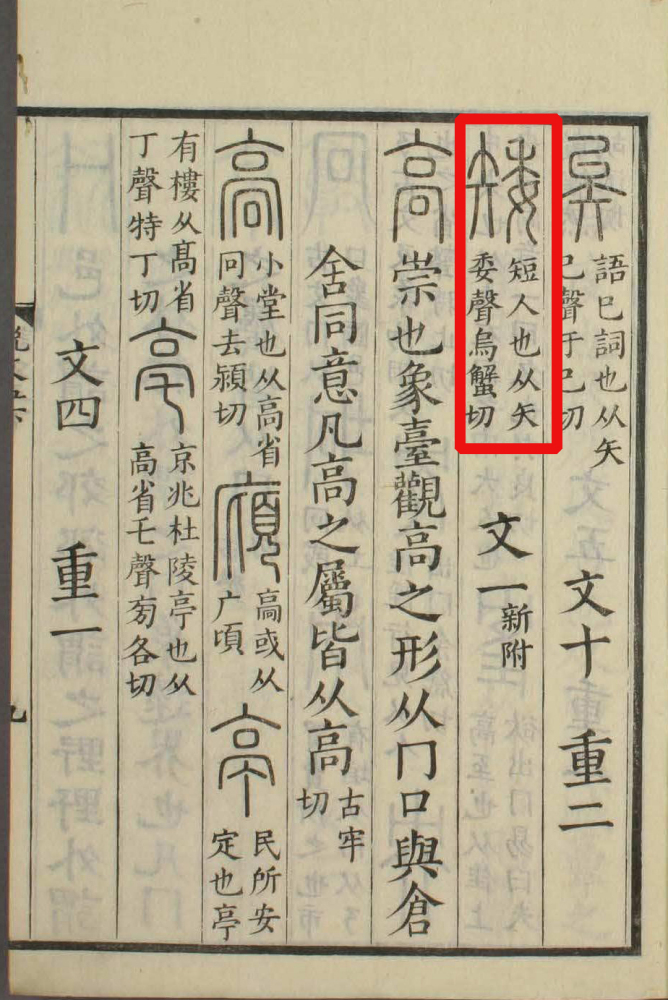 矣
語已詞也从矢
已聲于已切
文十 重二
矮
短人也从矢
委聲烏蟹切
文一
新附
高
崇也象臺觀高之形从冂口與倉
舍同意凡高之屬皆从高
古牢
切
高
小堂也从高省
冋聲去潁切
廎
高或从
广頃
亭
民所安
定也亭
有樓从高省
丁聲特丁切
亳
京兆杜陵亭也从
高省乇聲旁各切
文四 重一